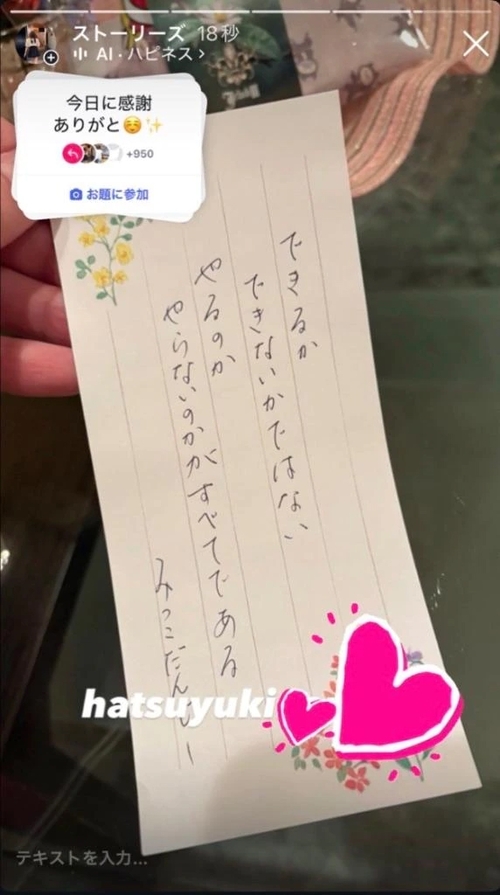 ストーリーズ 18秒
AI・ハピネス
今日に感謝
ありがと☺️✨
+950
お題に参加
できるか
できないかではない
やるのか
やらないのかがすべてである
hatsuyuki
テキストを入力...